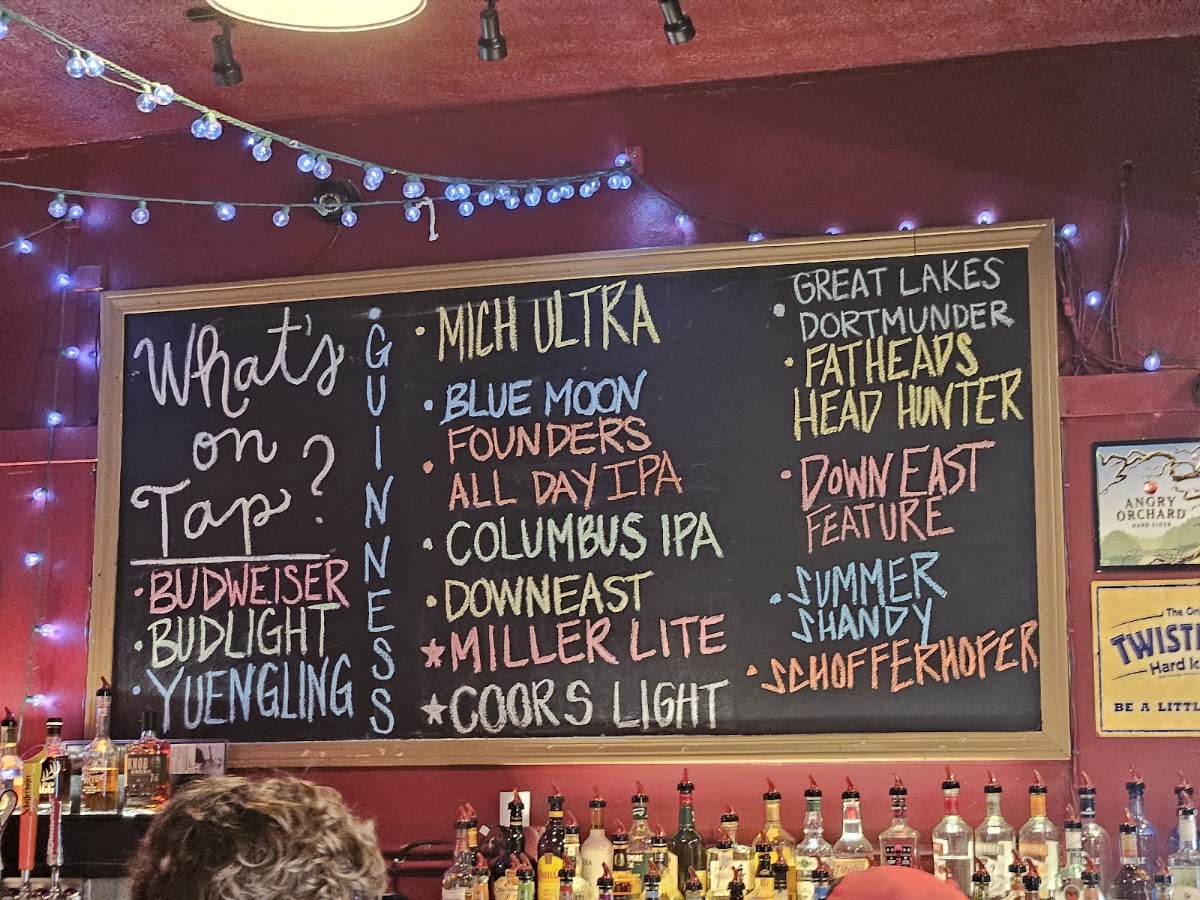 What's
on
Tap?
• BUDWEISER
• BUDLIGHT
• YUENGLING
• GUINNESS
• MICH ULTRA
• BLUE MOON
• FOUNDERS
ALL DAY IPA
• COLUMBUS IPA
• DOWNEAST
★ MILLER LITE
★ COORS LIGHT
• GREAT LAKES
DORTMUNDER
• FATHEADS
HEAD HUNTER
• DOWN EAST
FEATURE
• SUMMER
SHANDY
• SCHOFFERHOFER
ANGRY
ORCHARD
HARD CIDER
The
TWIST
Hard
BE A LITTL
KNOB